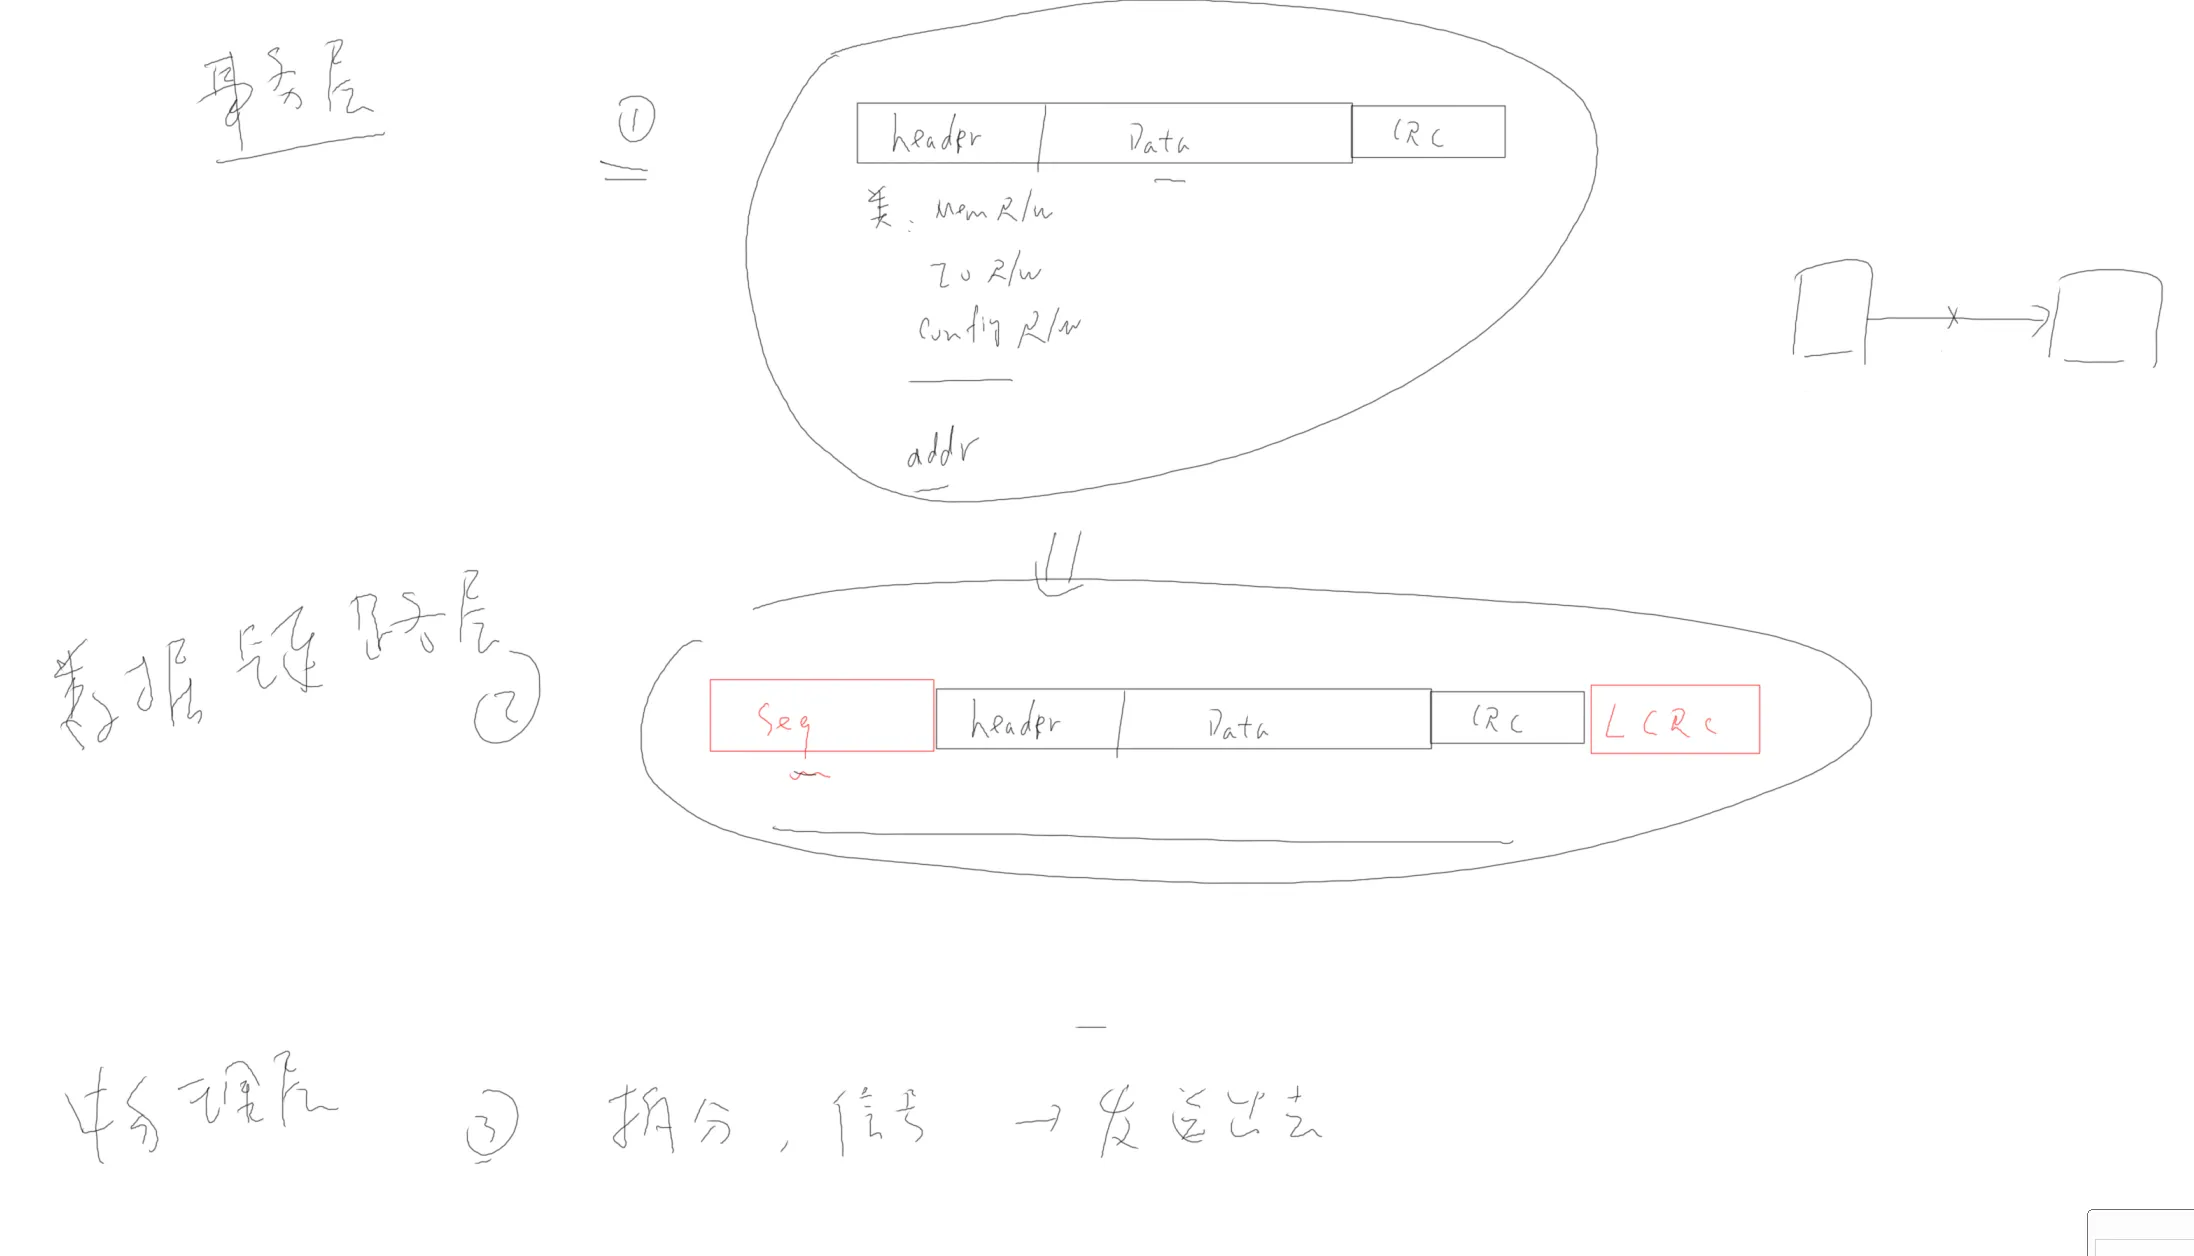 事务层
①
header Data CRC
类: Mem R/W
IO R/W
Config R/W
addr
数据链路层
②
Seq header Data CRC LCRC
物理层 ③ 拆分, 信号 → 发送出去